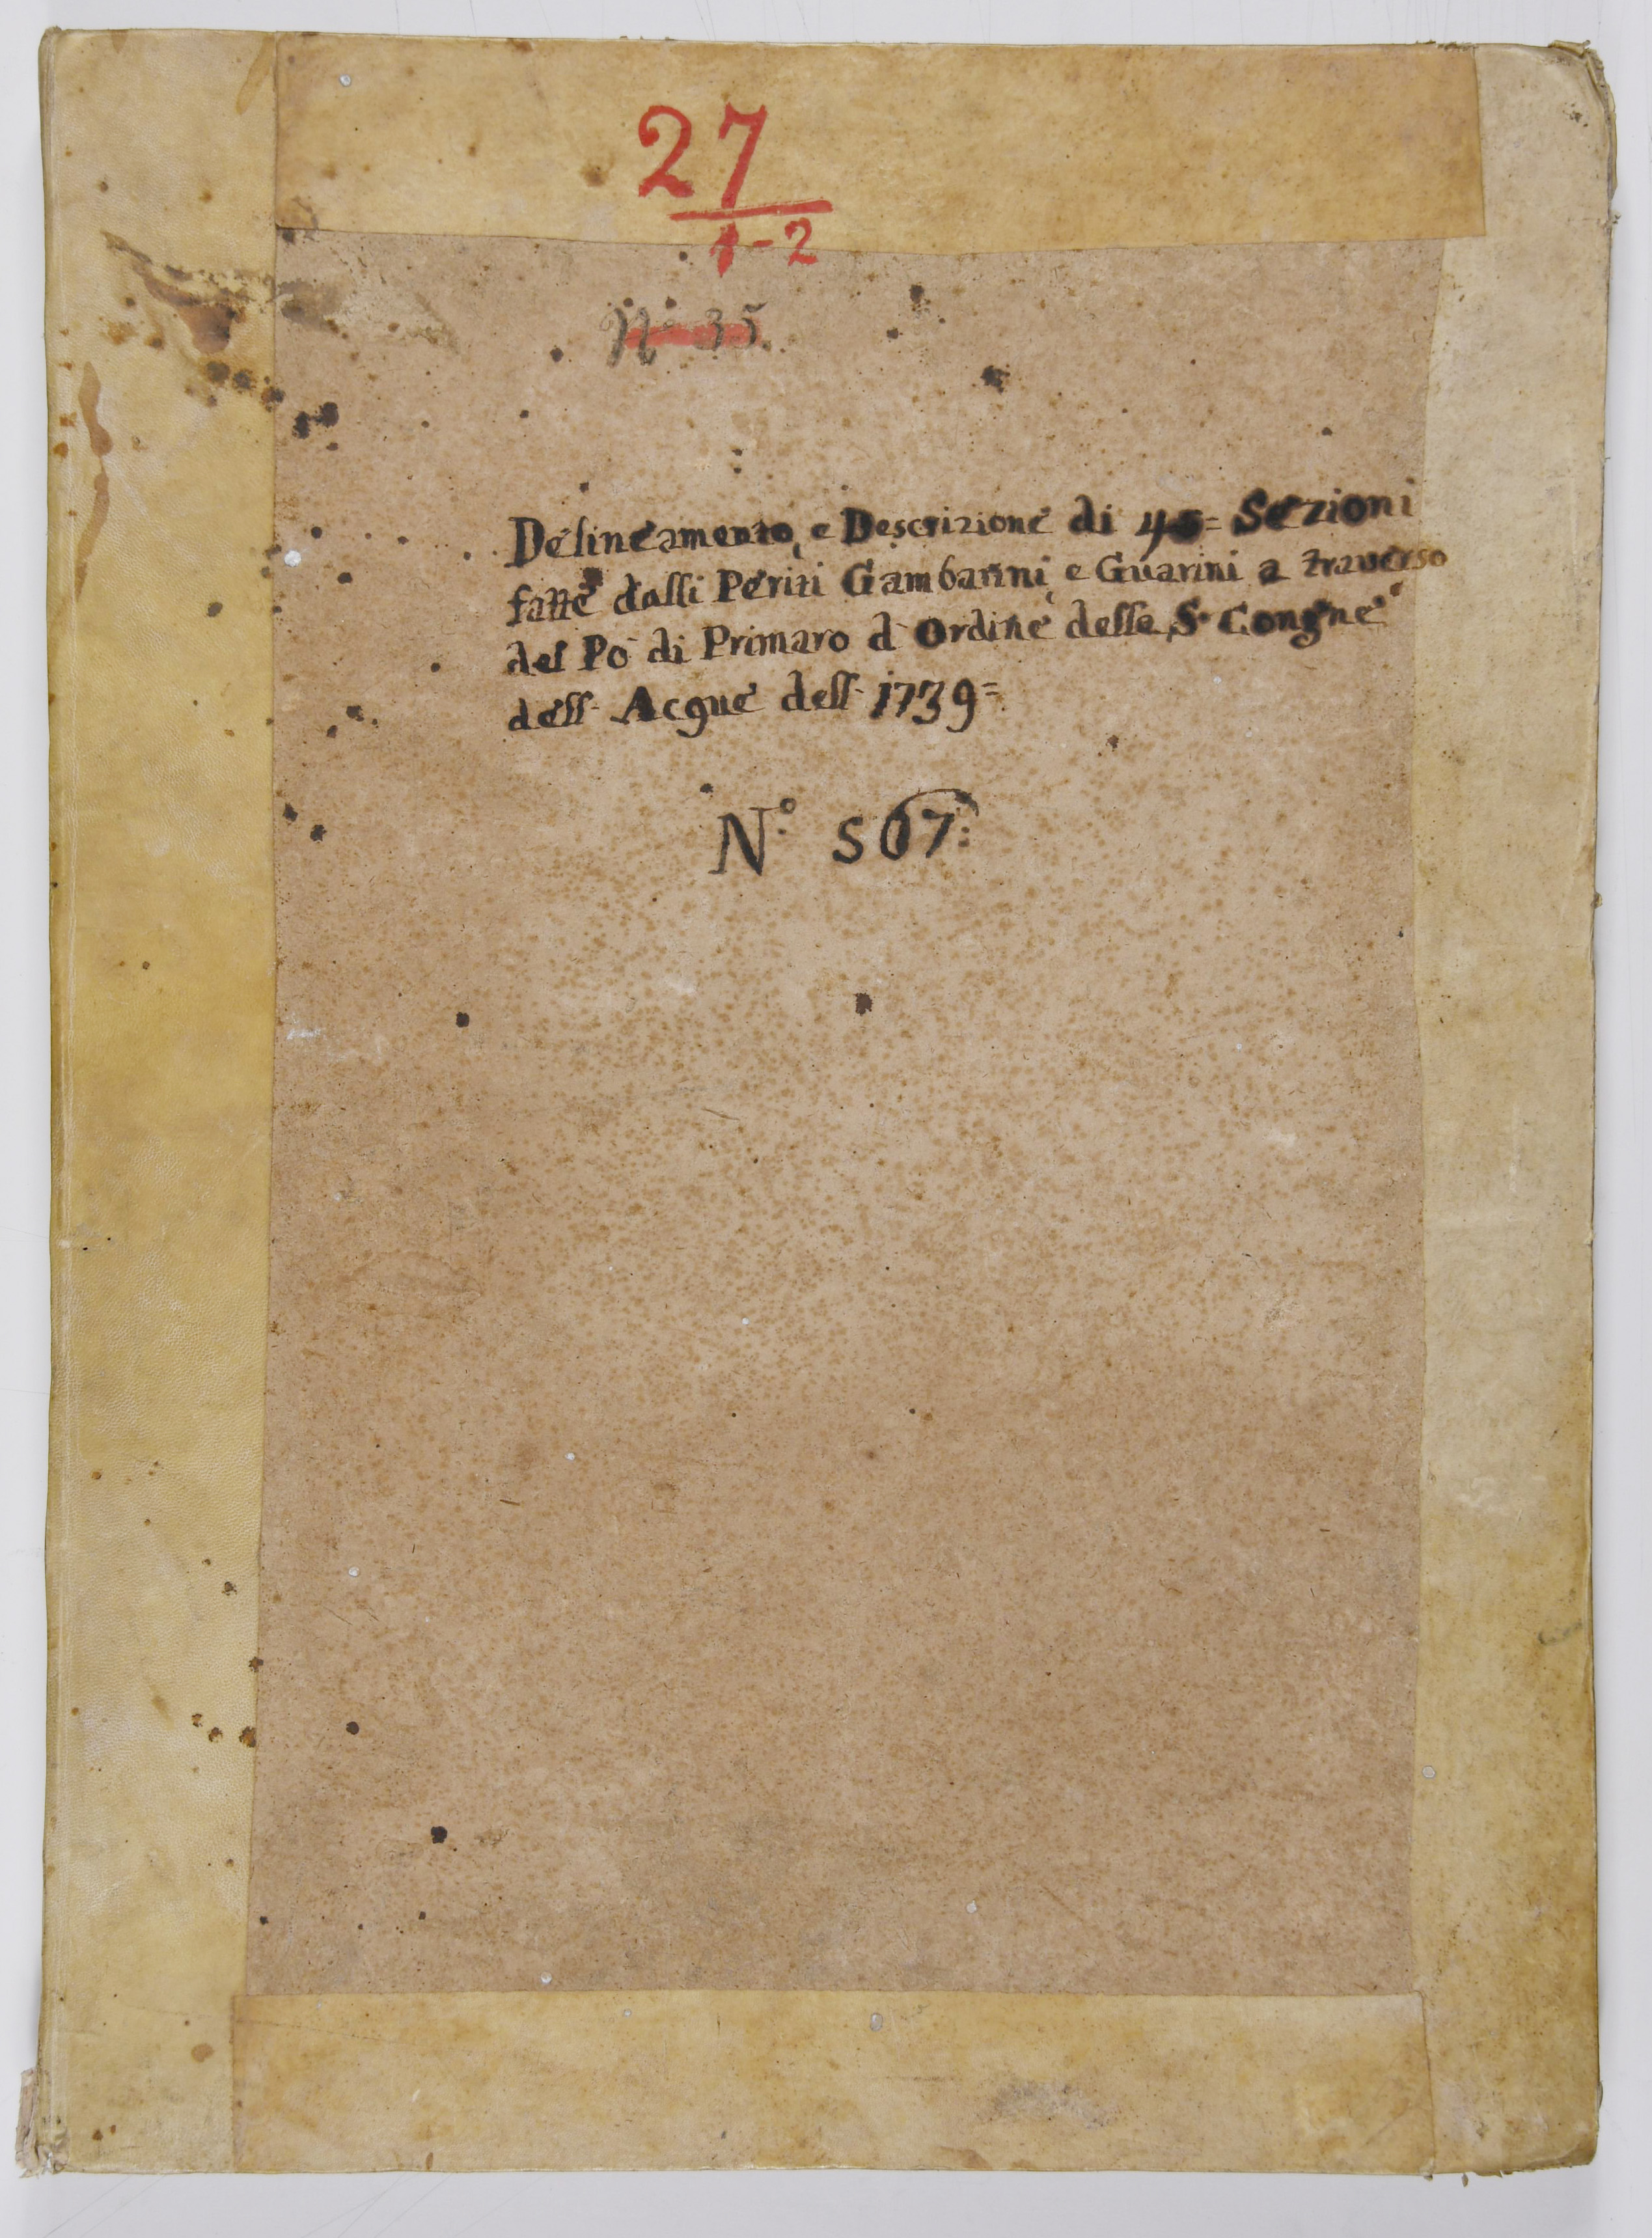 27
1-2
N° 35.
Delineamento, e Descrizione di 45= Sezioni
fatte dalli Periti Gambarini, e Guarini a traverso
del Po di Primaro d'Ordine della S. Congne
dell' Acque dell' 1739=
N.° 567: